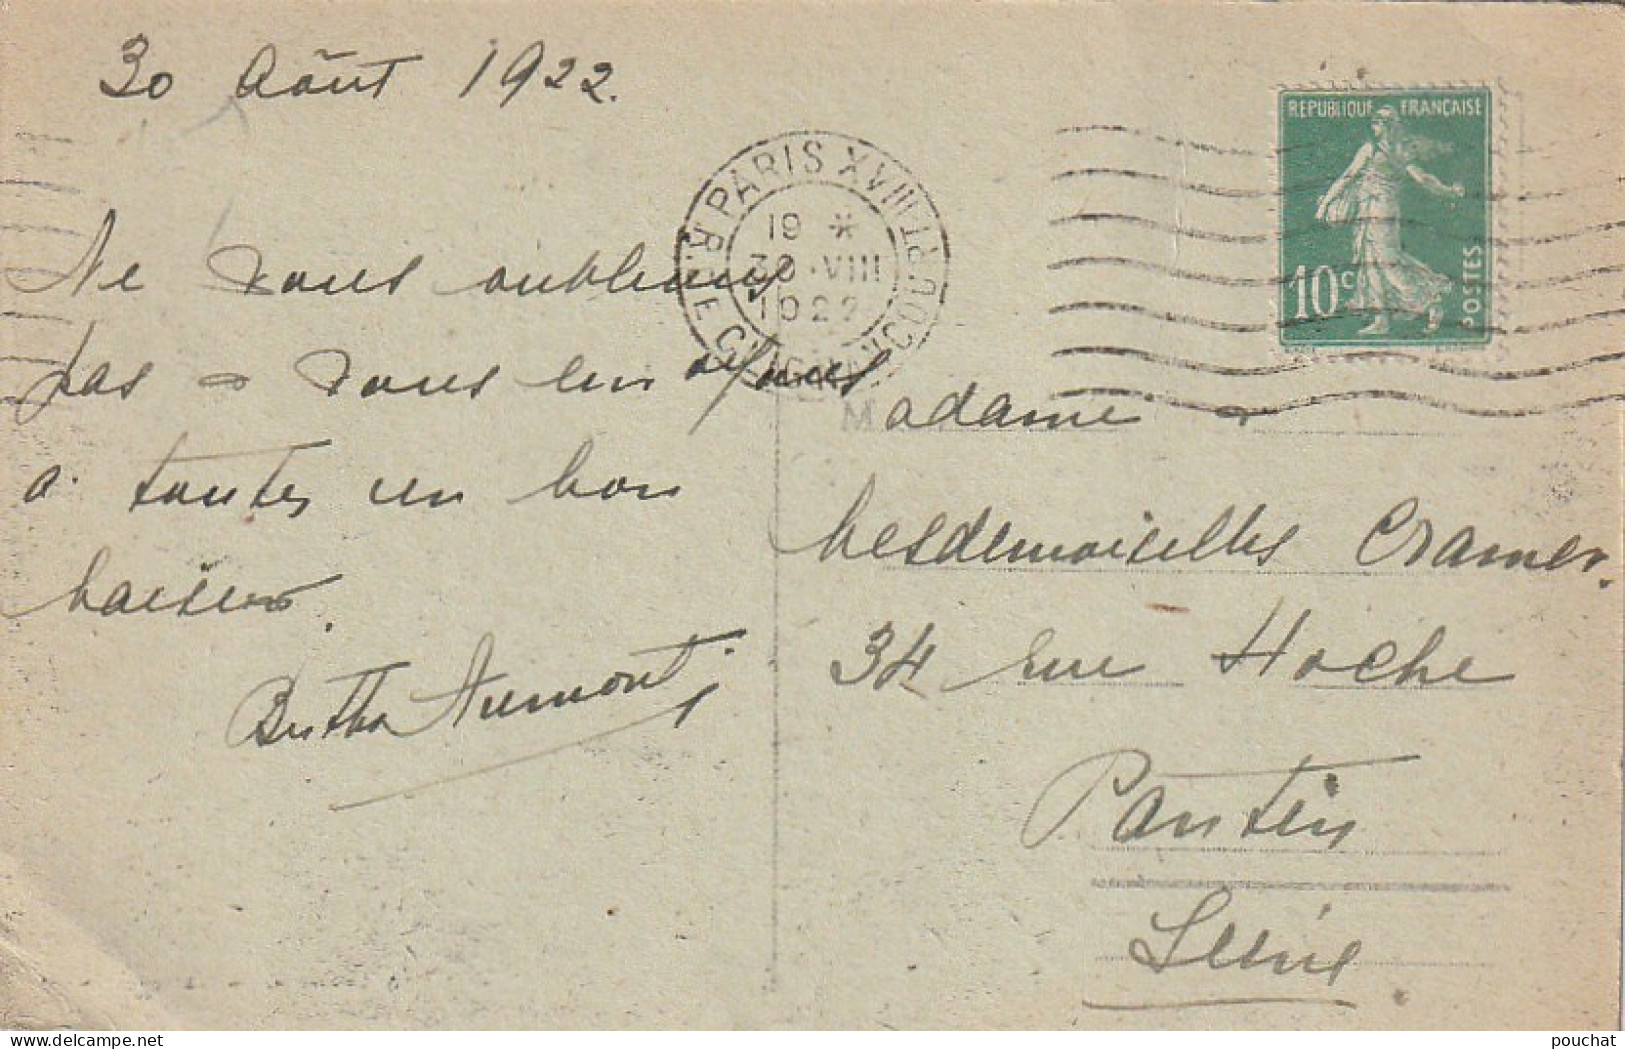 30 Août 1922.
Ne vous oubliant
pas & vous envoyant
à toutes un bon
baiser.
Bertha Aumont
PARIS XVIII
19 *
30 · VIII
1922
REPUBLIQUE FRANÇAISE
10c
POSTES
Madame &
Mesdemoiselles Cramer.
34 rue Hoche
Pantin
Seine
pouchat